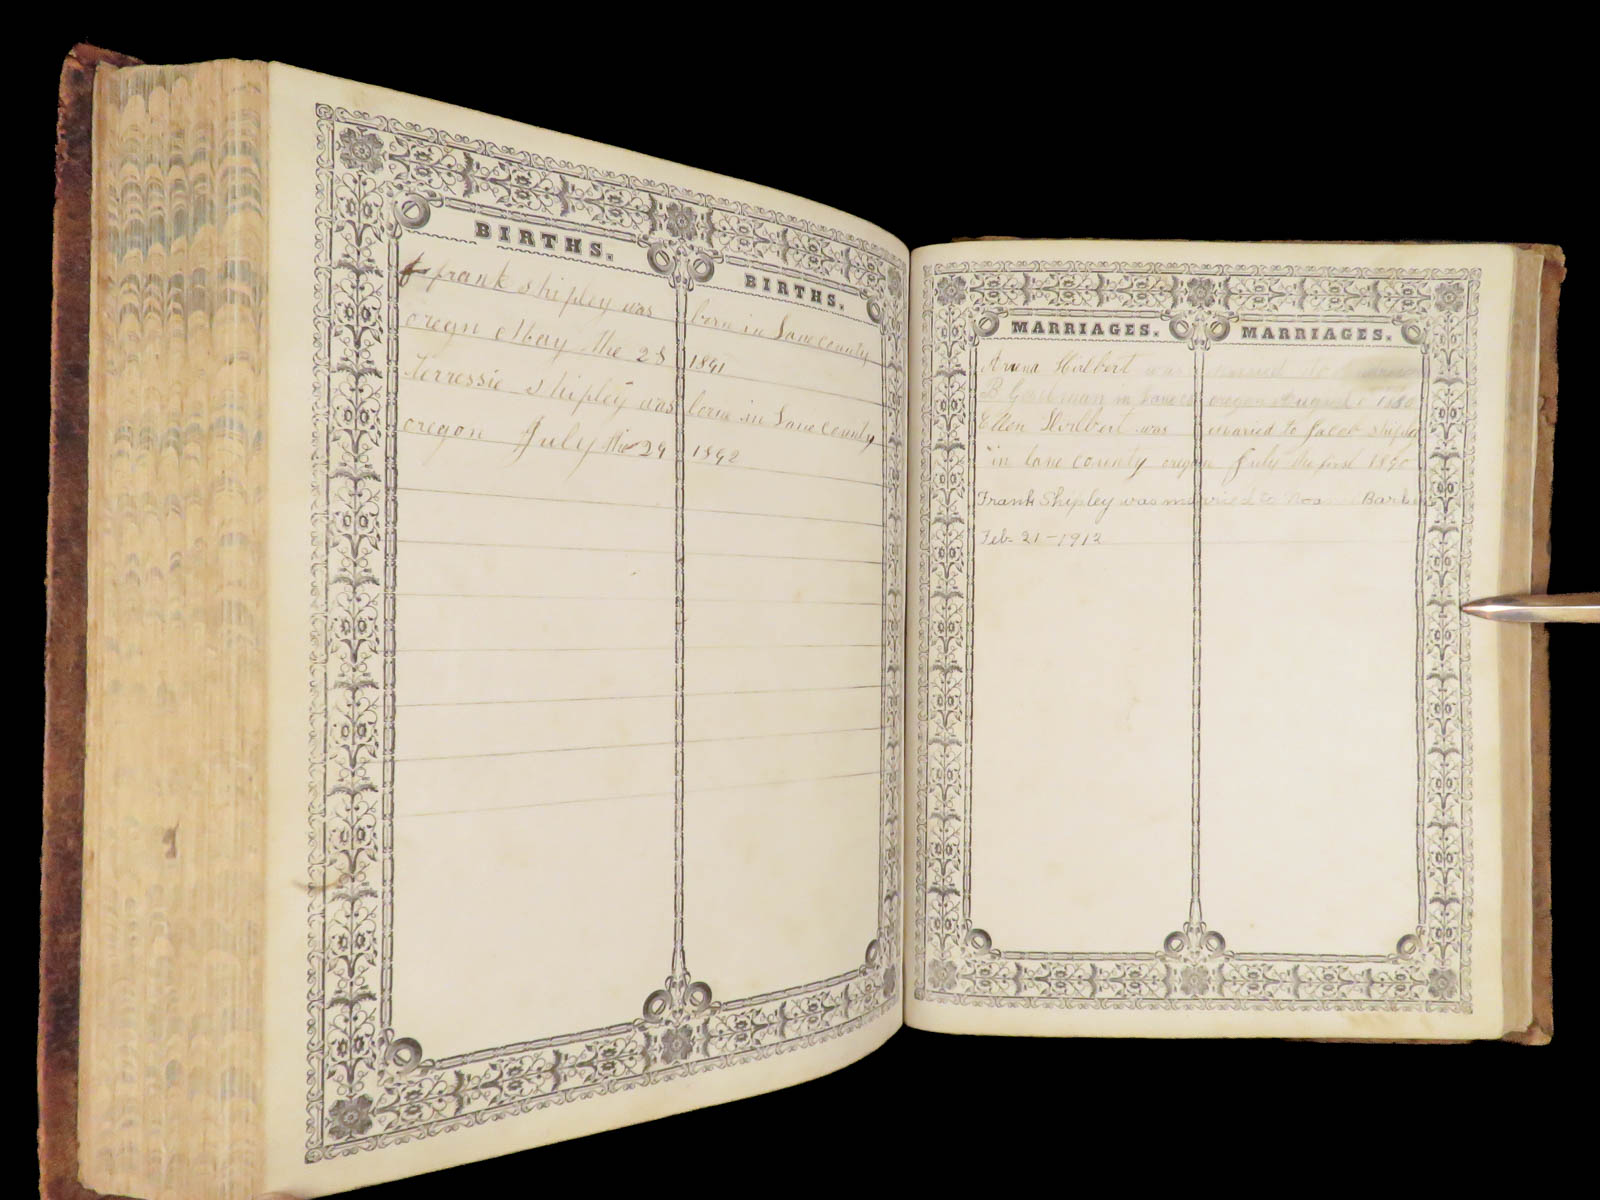 BIRTHS. BIRTHS.
frank shipley was born in Lane county
oregn May the 28 1891
Terressie shipley was born in Lane county
oregon July the 29 1892
MARRIAGES. MARRIAGES.
Hilbert was married to
B in Lane co oregon August
Ellen Hilbert was maried to Jacob Shipley
in lane county oregon July the first 1890
Frank Shipley was married to Barb
Feb- 21-1912